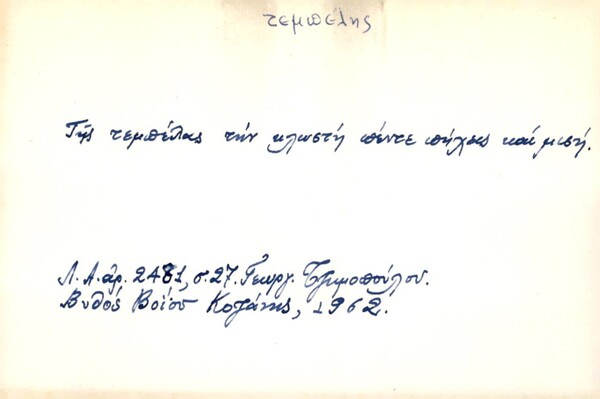 τεμπέλης
Τῆς τεμπέλας τήν κλωστή πέντε πήχες καί μισή.
Λ. Α. ἀρ. 2481, σ. 27. Γεωργ. Τζημοπούλου.
Βυθός Βοΐου Κοζάνης, 1962.